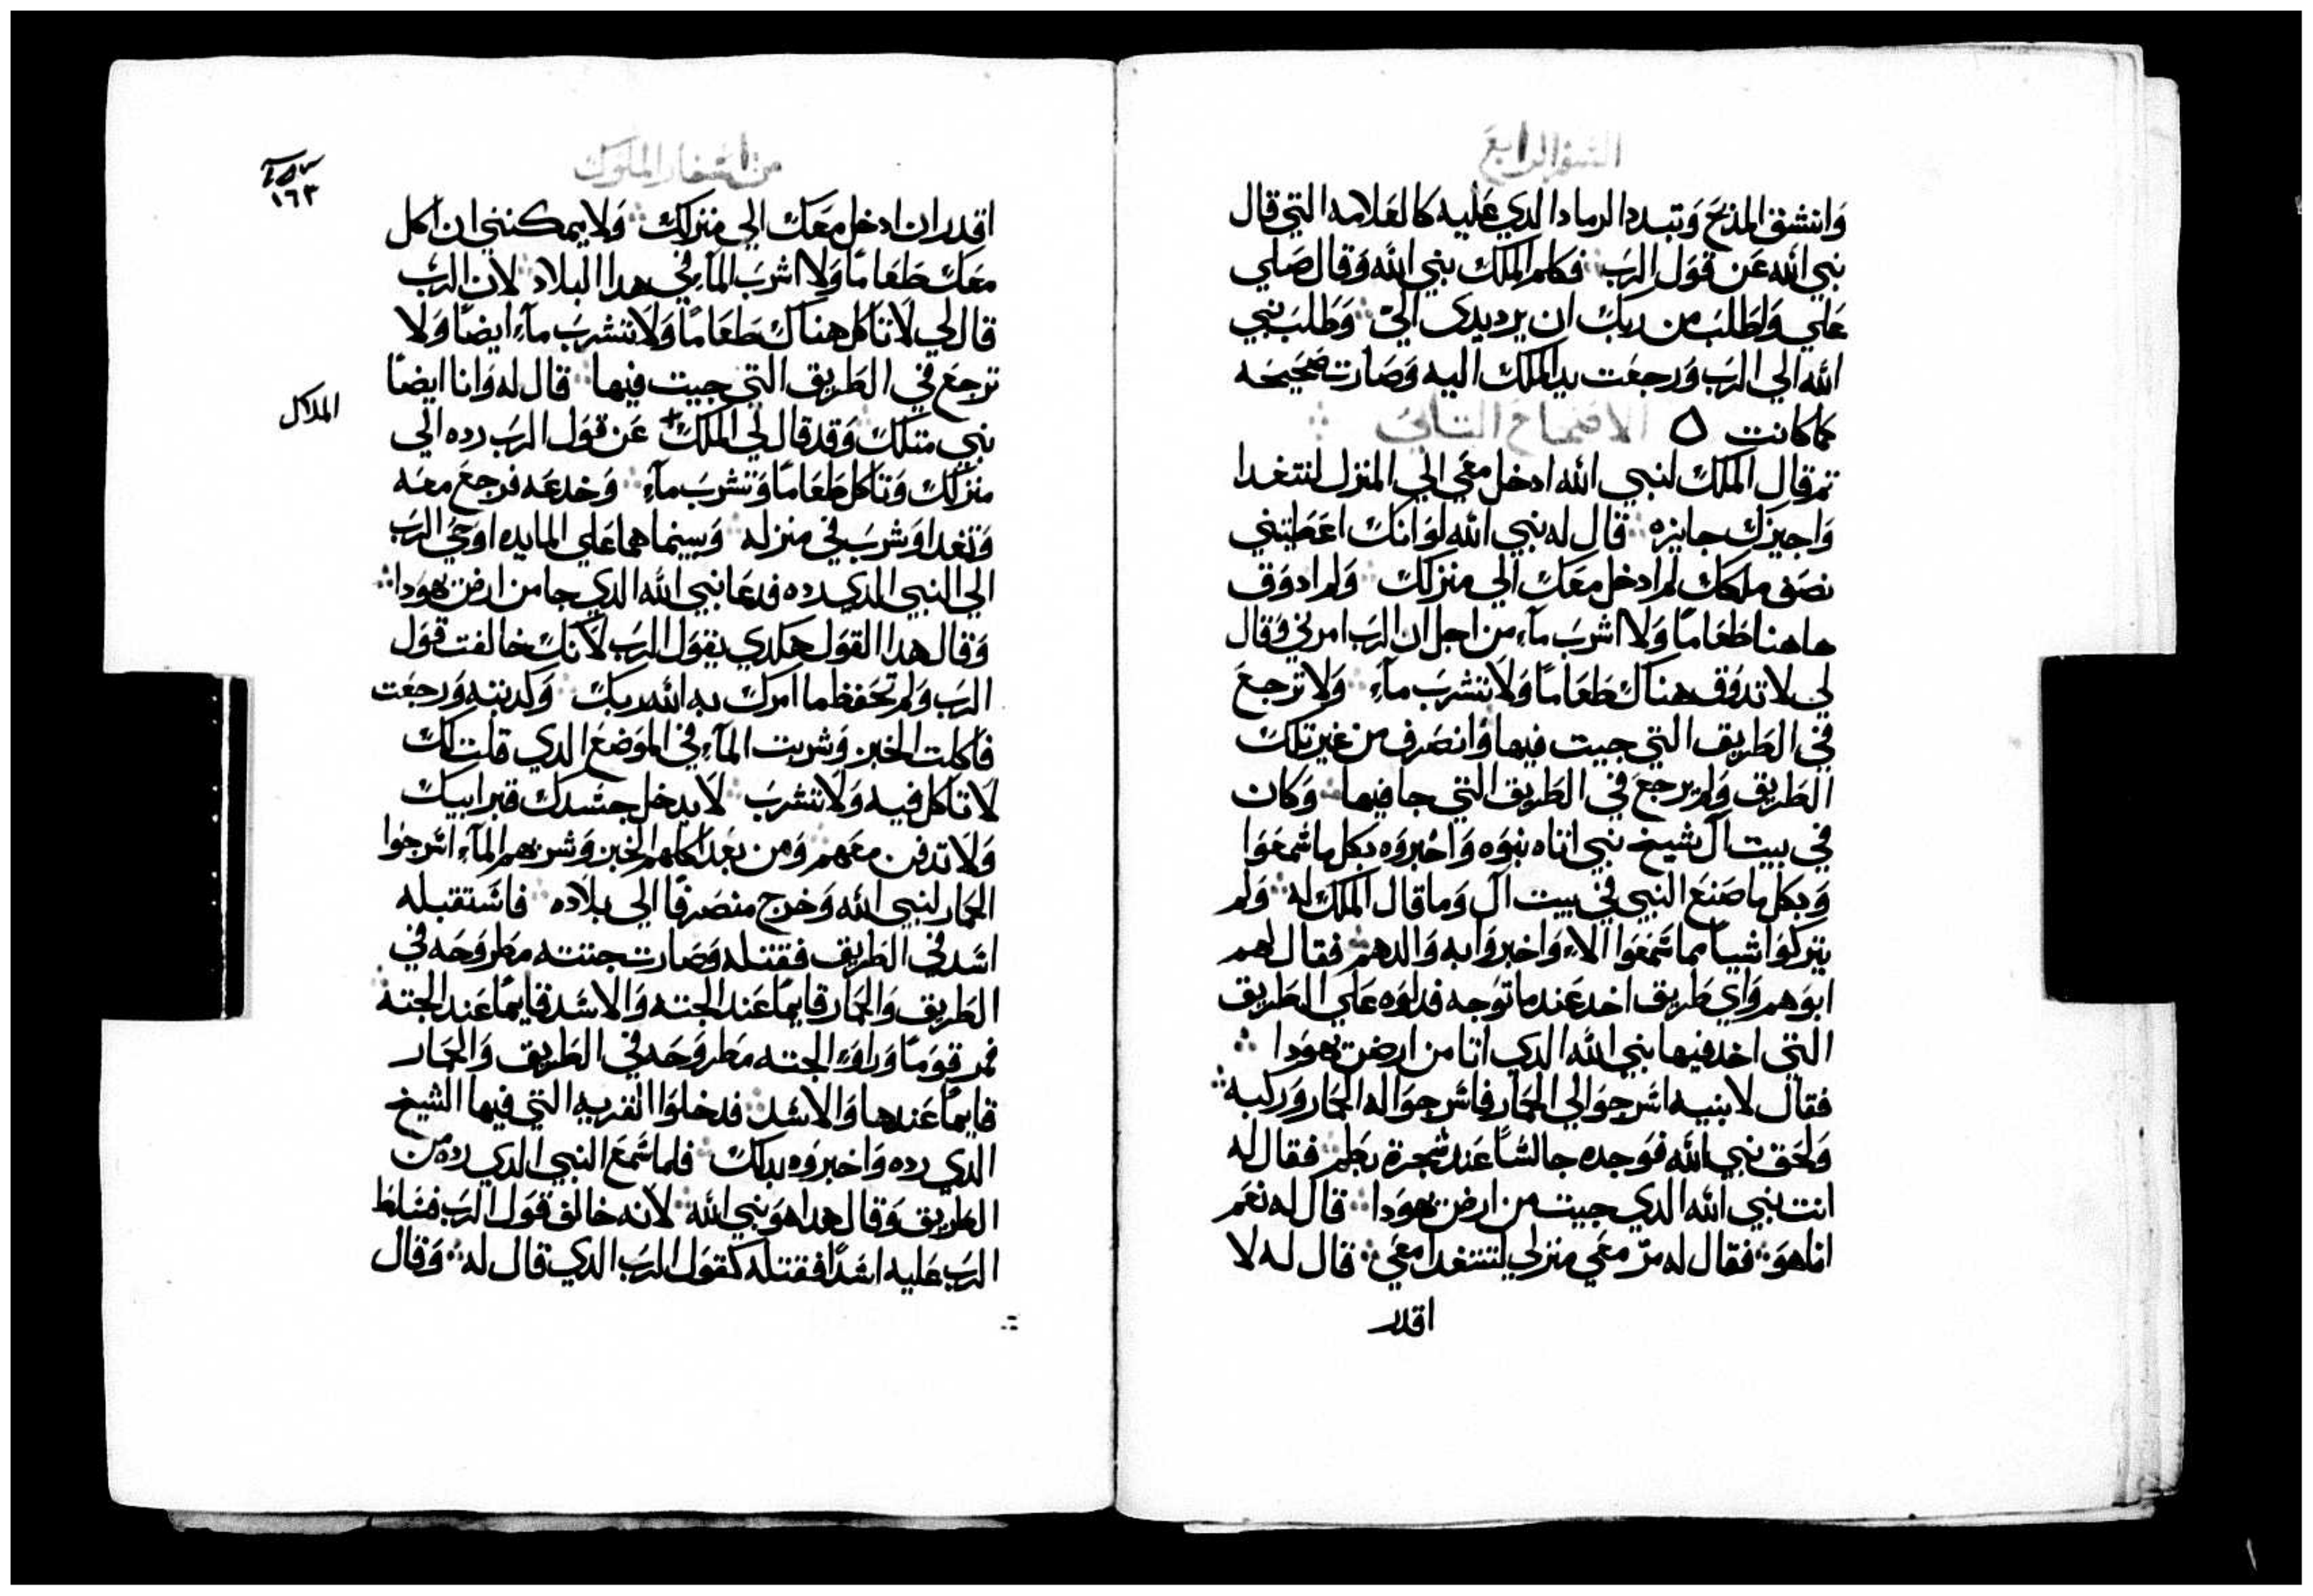 السفر الرابع
وَانشق المذبحَ وَتبدد الرماد الدي عَليه كالعَلامه التي قال
نبي الله عَن قوَل الرَب فكلم الملك نبي الله وَقال صَلي
عَلي وَاطلبَ من ربكَ ان يرد يدي اليّ وَطلبَ نبي
الله الي الرَب وَرجعَت يد الملك اليه وَصَارت صَحيحَه
كما كانت ٥ الاصحاح التاني
تم قال الملكَ لنبي الله ادخل معَي الي المنزل لنتغدا
وَاجيزك جايزه قال له نبي الله لوَ انكَ اعَطيتني
نصَف ملكك لم ادخل معَكَ الي منزلكَ وَلم ادوَق
هاهنا طعَامًا وَلا اشربَ مآء من اجل ان الرَب امرني وَقال
لي لا تدوَق هناك طعَامًا وَلا تشربَ مآء وَلا ترجعَ
في الطريق التي جيت فيها وَانصَرف من غير تلكَ
الطريق وَلم يرجعَ في الطريق التي جا فيها وَكان
في بيت آل شيخ نبي اتاه بنوَه وَاخبروَه بكل ما سَمعَوَا
وَبكل ما صَنعَ النبي في بيت آل وَما قال الملك له وَلم
يتركوَا شيا مما سَمعَوَا الا وَاخبروَا به وَالدهم فقال لهم
ابوَهم وَاي طريق اخد عَند ما توَجه فدلوَه عَلي الطريق
التي اخد فيها نبي الله الدي اتا من ارض يهوَدا
فقال لابنيه اسَرجوَا لي الحَمار فاسَرجوَا له الحَمار وَركبه
وَلحَق نبي الله فوَجده جالسًا عَند شجرة بطم فقال له
انت نبي الله الدي جيت من ارض يهوَدا قال له نعَم
انا هوَ فقال له مرّ معَي منزلي لتتغدا معَي قال له لا
اقدر
من اسَفار الملوَك
١٦٣
اقدر ان ادخل معَكَ الي منزلكَ وَلا يمكنني ان اكل
معَكَ طعَامًا وَلا اشربَ المآء في هدا البلاد لان الرَب
قال لي لا تاكل هناك طعَامًا وَلا تشربَ مآء ايضًا وَلا
ترجعَ في الطريق التي جيت فيها قال له وَانا ايضًا
نبي متلكَ وَقد قال لي الملكَ + عَن قوَل الرَب رده الي
الملاك
منزلكَ وَتاكل طعَامًا وَتشربَ مآء وَخدعَه فرجعَ معَه
وَتغدا وَشربَ في منزله وَبينما هما عَلي المايده اوَحَي الرَب
الي النبي الدي رده فدعَا نبي الله الدي جا من ارض يهوَدا
وَقال هدا القوَل هكدي يقوَل الرَب لانكَ خالفت قوَل
الرَب وَلم تحَفظ ما امركَ به الله ربكَ وَكدبته وَرجعَت
فاكلت الخبز وَشربت المآء في الموَضعَ الدي قلت لكَ
لا تاكل فيه وَلا تشربَ لا يدخل جسَدك قبر ابيكَ
وَلا تدفن معَهم وَمن بعَد اكلهم الخبز وَشربهم المآء اسَرجوَا
الحَمار لنبي الله وَخرج منصَرفًا الي بلاده فاسَتقبله
اسَد في الطريق فقتله وَصَارت جتته مطروَحَه في
الطريق وَالحَمار قايمًا عَند الجته وَالاسَد قايمًا عَند الجته
فمر قوَمًا وَراوَا الجته مطروَحَه في الطريق وَالحَمار
قايمًا عَندها وَالاسَد فدخلوَا القريه التي فيها الشيخ
الدي رده وَاخبروَه بدلكَ فلما سَمعَ النبي الدي رده من
الطريق وَقال هدا هوَ نبي الله لانه خالف قوَل الرَب فسَلط
الرَب عَليه اسَدًا فقتله كقوَل الرَب الدي قال له وَقال